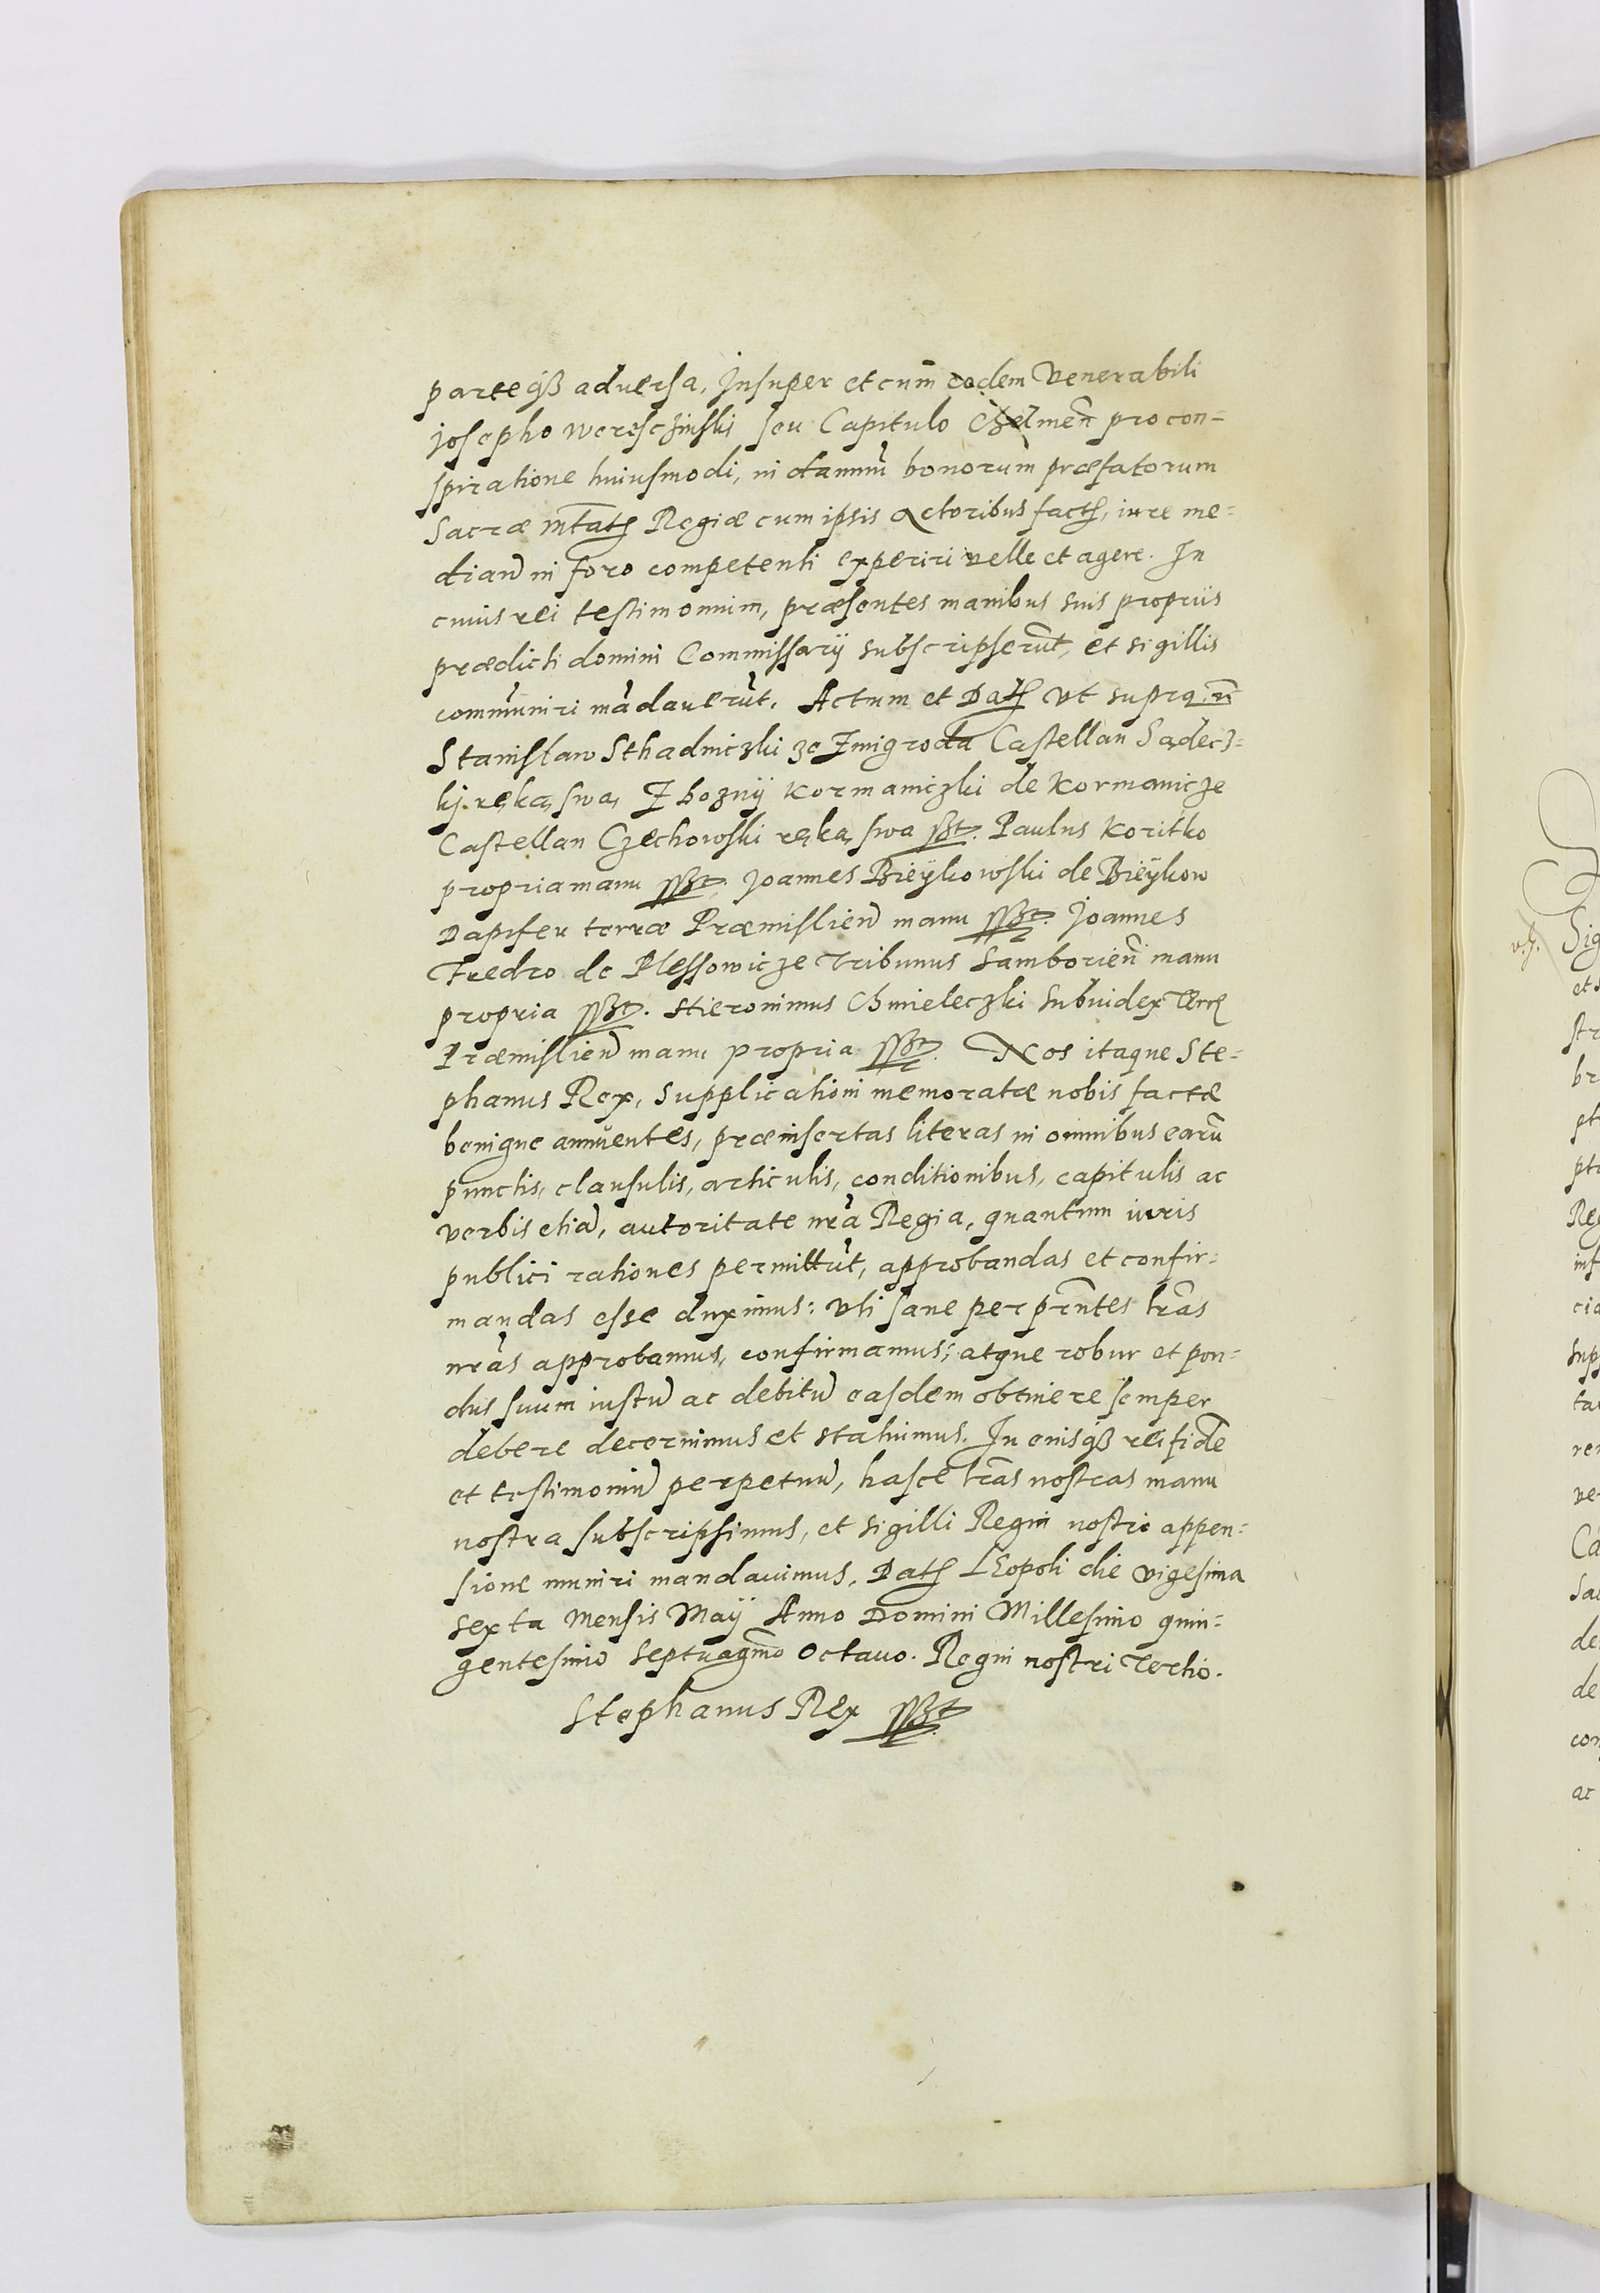 parteqз adversa, Insuper et cum eodem Venerabili
Josepho Wereschinski seu Capitulo Chelmen̄ pro con=
spiratione huiusmodi, in damnū bonorum præfatorum
Sacræ Mtatꝭ Regiæ cum ipsis Actoribus factꝭ, iure me=
dian̄ in foro competenti experiri velle et agere. In
cuius rei testimonium, præsentes manibus suis propriis
prædicti domini Commissarij subscripserūt, et sigillis
communiri mādaverūt. Actum et Datꝭ vt supra
Stanislaw Sthadniczki ze Zmigroda Castellan Sądecz=
kj ręką swą Zbozny Kormaniczki de Kormanicze
Castellan Czechowski ręką swa sszt. Paulus Koritko
propria manu sszt. Joannes Brzeÿkowski de Brzeÿkow
Dapifer terræ Præmislien̄ manu sszt. Joannes
Fredro de Plessowicze Tribunus Samborien̄ manu
propria sszt. Hieronimus Chmieleczki Subiudex Terrꝭ
Præmislien̄ manu propria sszt. Nos itaque Ste=
phanus Rex, supplicationi memoratæ nobis factæ
benigne annuentes, præinsertas literas in omnibus earū
punctis, clausulis, articulis, conditionibus, capitulis ac
verbis etiā, autoritate nrā Regia, quantum iuris
publici rationes permittūt, approbandas et confir=
mandas esse duximus: vti sane per prn̄tes lrās
nrās approbamus, confirmamus; atque robur et pon=
dus suum iustū ac debitū easdem obtinere semper
debere decernimus et statuimus. In cuiusqз rei fidē
et testimoniū perpetuū, hasce lrās nostras manu
nostra subscripsimus, et sigilli Regni nostri appen=
sione muniri mandavimus, Datꝭ LEopoli die vigesima
sexta Mensis Maÿ Anno Domini Millesimo quin=
gentesimo septuagmō Octavo. Regni nostri Tertio.
Stephanus Rex sszt